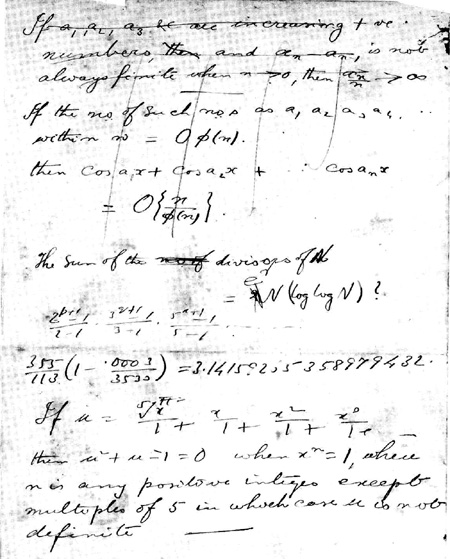 If a₁, a₂, a₃ &c are increasing +ve
numbers, and aₙ - aₙ₋₁ is not
always finite when n → ∞, then aₙ/n → ∞
If the no of such nos as a₁ a₂ a₃ a₄ ...
within n = O φ(n).
then Cos a₁x + Cos a₂x + ... Cos aₙx
= O{n/φ(n)}.
The Sum of the divisors of N
= N (log log N) ?
(2^(p+1) - 1)/(2-1) · (3^(q+1) - 1)/(3-1) · (5^(r+1) - 1)/(5-1) ...
355/113 (1 - .0003/3533) = 3.14159265358979432.
If u = ⁵√x/1 + x/1 + x²/1 + x³/1 +
then u² + u - 1 = 0 when xⁿ = 1, where
n is any positive integer except
multiples of 5 in which case u is not
definite